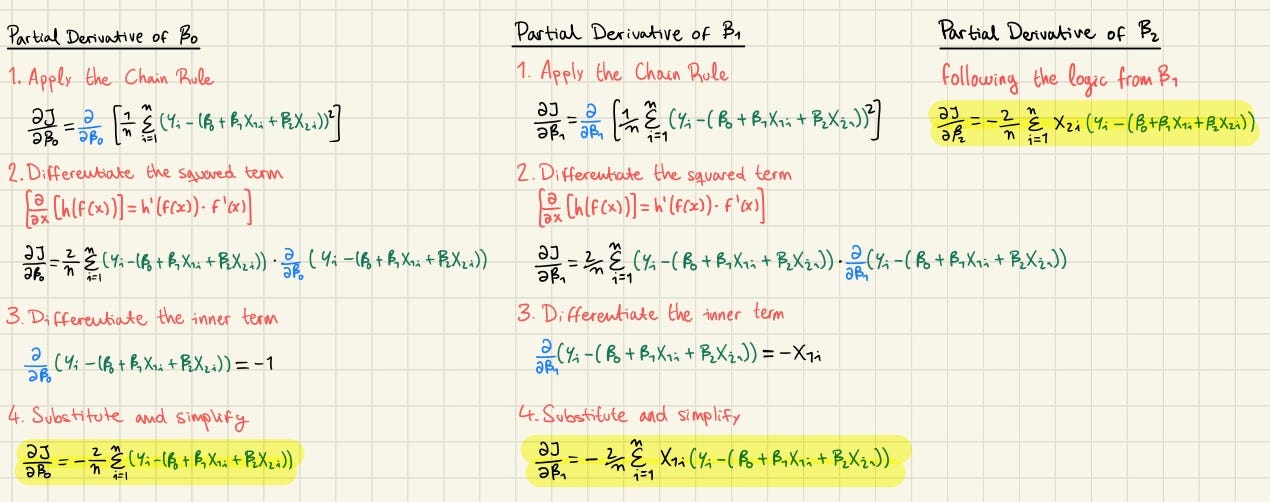 Partial Derivative of β₀
1. Apply the Chain Rule
∂J/∂β₀ = ∂/∂β₀ [1/n Σᵢ₌₁ⁿ (yᵢ - (β₀ + β₁X₁ᵢ + β₂X₂ᵢ))²]
2. Differentiate the squared term
[∂/∂x [h(f(x))] = h'(f(x)) · f'(x)]
∂J/∂β₀ = 2/n Σᵢ₌₁ⁿ (yᵢ - (β₀ + β₁X₁ᵢ + β₂X₂ᵢ)) · ∂/∂β₀ (yᵢ - (β₀ + β₁X₁ᵢ + β₂X₂ᵢ))
3. Differentiate the inner term
∂/∂β₀ (yᵢ - (β₀ + β₁X₁ᵢ + β₂X₂ᵢ)) = -1
4. Substitute and simplify
∂J/∂β₀ = - 2/n Σᵢ₌₁ⁿ (yᵢ - (β₀ + β₁X₁ᵢ + β₂X₂ᵢ))
Partial Derivative of β₁
1. Apply the Chain Rule
∂J/∂β₁ = ∂/∂β₁ [1/n Σᵢ₌₁ⁿ (yᵢ - (β₀ + β₁X₁ᵢ + β₂X₂ᵢ))²]
2. Differentiate the squared term
[∂/∂x [h(f(x))] = h'(f(x)) · f'(x)]
∂J/∂β₁ = 2/n Σᵢ₌₁ⁿ (yᵢ - (β₀ + β₁X₁ᵢ + β₂X₂ᵢ)) · ∂/∂β₁ (yᵢ - (β₀ + β₁X₁ᵢ + β₂X₂ᵢ))
3. Differentiate the inner term
∂/∂β₁ (yᵢ - (β₀ + β₁X₁ᵢ + β₂X₂ᵢ)) = -X₁ᵢ
4. Substitute and simplify
∂J/∂β₁ = - 2/n Σᵢ₌₁ⁿ X₁ᵢ (yᵢ - (β₀ + β₁X₁ᵢ + β₂X₂ᵢ))
Partial Derivative of β₂
following the logic from β₁
∂J/∂β₂ = - 2/n Σᵢ₌₁ⁿ X₂ᵢ (yᵢ - (β₀ + β₁X₁ᵢ + β₂X₂ᵢ))